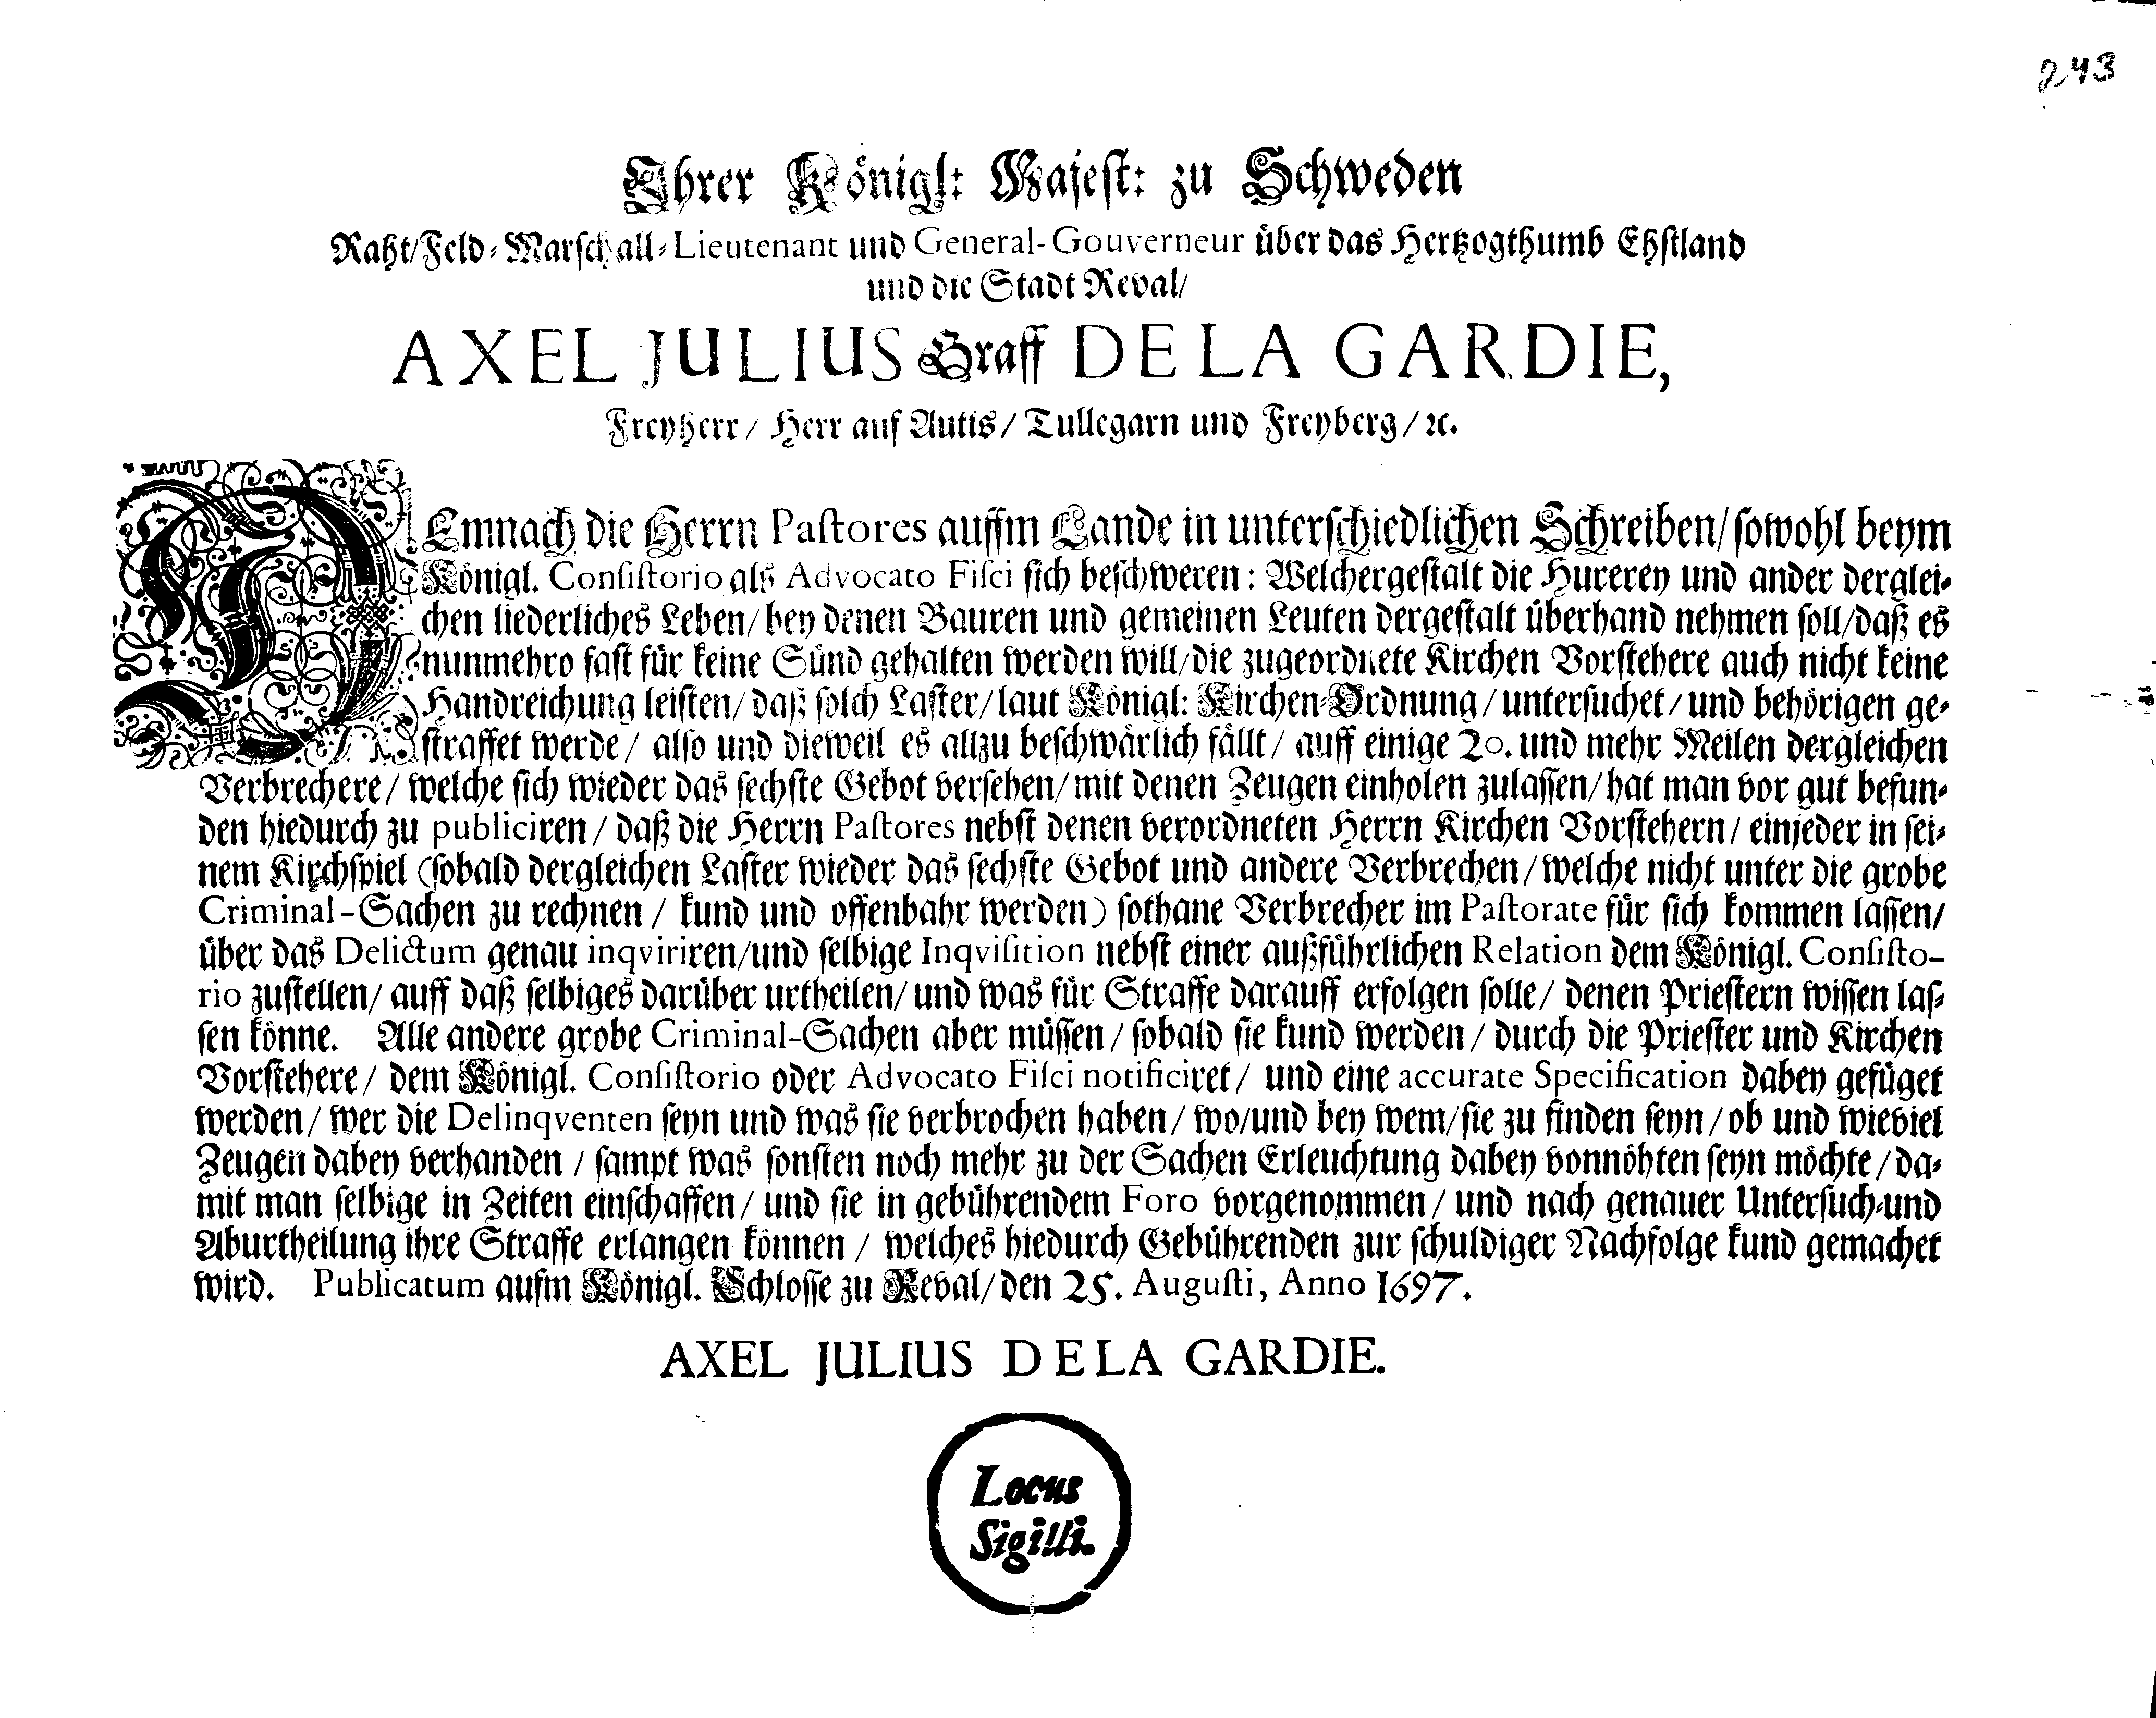 243
Ihrer Königl: Majest: zu Schweden
Raht/Feld-Marschall-Lieutenant und General-Gouverneur über das Hertzogthumb Ehstland
und die Stadt Reval/
AXEL JULIUS Graff DE LA GARDIE,
Freyherr/ Herr auf Autis/ Tullegarn und Freyberg/ ꝛc.
DEmnach die Herrn Pastores auffm Lande in unterschiedlichen Schreiben/sowohl beym
Königl. Consistorio als Advocato Fisci sich beschweren: Welchergestalt die Hurerey und ander derglei-
chen liederliches Leben/ bey denen Bauren und gemeinen Leuten dergestalt überhand nehmen soll/daß es
nunmehro fast für keine Sünd gehalten werden will/die zugeordnete Kirchen Vorstehere auch nicht keine
Handreichung leisten/ daß solch Laster/laut Königl: Kirchen-Ordnung/ untersuchet/ und behörigen ge-
straffet werde/ also und dieweil es allzu beschwärlich fällt/ auff einige 20. und mehr Meilen dergleichen
Verbrechere/ welche sich wieder das sechste Gebot versehen/ mit denen Zeugen einholen zulassen/ hat man vor gut befun-
den hiedurch zu publiciren/ daß die Herrn Pastores nebst denen verordneten Herrn Kirchen Vorstehern/ einjeder in sei-
nem Kirchspiel (sobald dergleichen Laster wieder das sechste Gebot und andere Verbrechen/ welche nicht unter die grobe
Criminal-Sachen zu rechnen/ kund und offenbahr werden) sothane Verbrecher im Pastorate für sich kommen lassen/
über das Delictum genau inqviriren/und selbige Inqvisition nebst einer außführlichen Relation dem Königl. Consisto-
rio zustellen/ auff daß selbiges darüber urtheilen/ und was für Straffe darauff erfolgen solle/ denen Priestern wissen las-
sen könne. Alle andere grobe Criminal-Sachen aber müssen/ sobald sie kund werden/ durch die Priester und Kirchen
Vorstehere/ dem Königl. Consistorio oder Advocato Fisci notificiret/ und eine accurate Specification dabey gefüget
werden/ wer die Delinqventen seyn und was sie verbrochen haben/ wo/und bey wem/sie zu finden seyn/ ob und wieviel
Zeugen dabey verhanden/ sampt was sonsten noch mehr zu der Sachen Erleuchtung dabey vonnöhten seyn möchte/ da-
mit man selbige in Zeiten einschaffen/ und sie in gebührendem Foro vorgenommen/ und nach genauer Untersuch-und
Aburtheilung ihre Straffe erlangen können/ welches hiedurch Gebührenden zur schuldiger Nachfolge kund gemachet
wird. Publicatum aufm Königl. Schlosse zu Reval/den 25. Augusti, Anno 1697.
AXEL JULIUS DE LA GARDIE.
Locus
Sigilli.